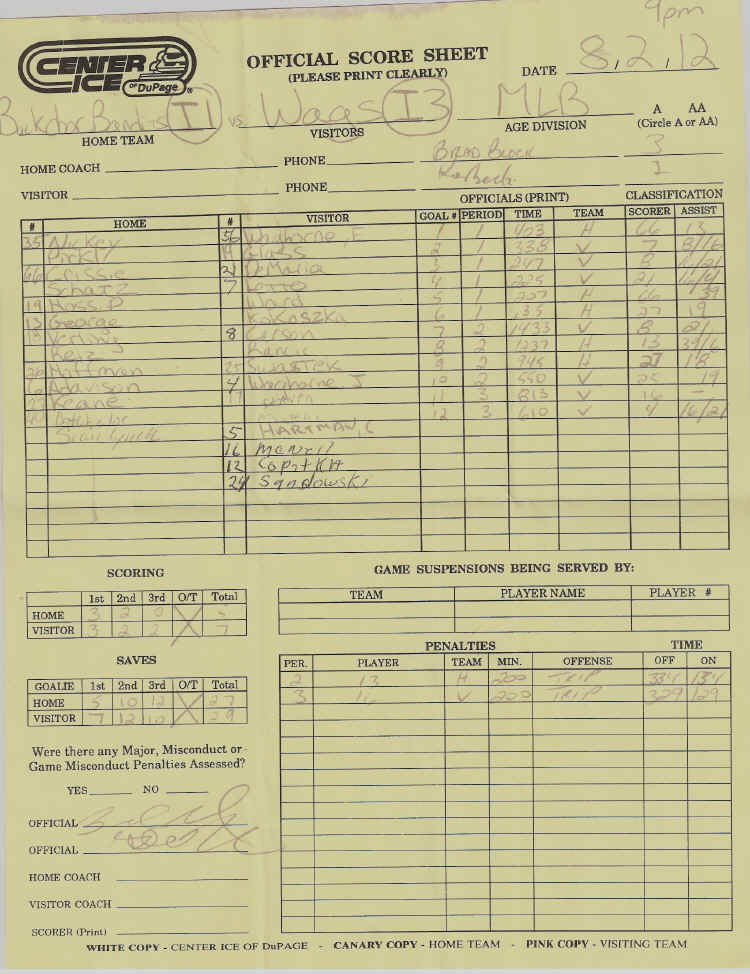 9pm
CENTER ICE OF DuPage ®
OFFICIAL SCORE SHEET
(PLEASE PRINT CLEARLY)
DATE 8/2/12
I1 vs. Waas I3 MLB
A AA
HOME TEAM VISITORS AGE DIVISION (Circle A or AA)
HOME COACH PHONE BRAD BLOCK 3
VISITOR PHONE 1
OFFICIALS (PRINT) CLASSIFICATION
# HOME # VISITOR GOAL # PERIOD TIME TEAM SCORER ASSIST
35 Nickey 56 Whithorne, F 1 1 403 H 66 13
Glass 2 1 338 V 7 8/16
66 Grissie 21 DeMaria 3 1 247 V 8
Schatz 7 Letto 4 1 225 V 21
19 Moss, P Ward 5 1 207 H 66 39
13 George Kokoszka 6 1 135 H 27 19
8 Carson 7 2 1433 V 8 21
Betz 8 2 1237 H 13 39/6
Hoffman 25 9 2 945 H 27 18
Adavison 4 J 10 2 550 V 25 19
27 Keane 11 3 813 V 16 -
12 3 610 V 4 16/21
5 HARTMAN, C
16
12
24 Sandowski
SCORING
1st 2nd 3rd O/T Total
HOME 3 2 0 5
VISITOR 3 2 2 7
SAVES
GOALIE 1st 2nd 3rd O/T Total
HOME 5 10 12 27
VISITOR 7 12 10 29
Were there any Major, Misconduct or
Game Misconduct Penalties Assessed?
YES NO
OFFICIAL
OFFICIAL
HOME COACH
VISITOR COACH
SCORER (Print)
GAME SUSPENSIONS BEING SERVED BY:
TEAM PLAYER NAME PLAYER #
PENALTIES TIME
PER. PLAYER TEAM MIN. OFFENSE OFF ON
2 13 H 200 TRIP 334 134
3 16 V 200 TRIP 329 129
WHITE COPY - CENTER ICE OF DuPAGE - CANARY COPY - HOME TEAM - PINK COPY - VISITING TEAM